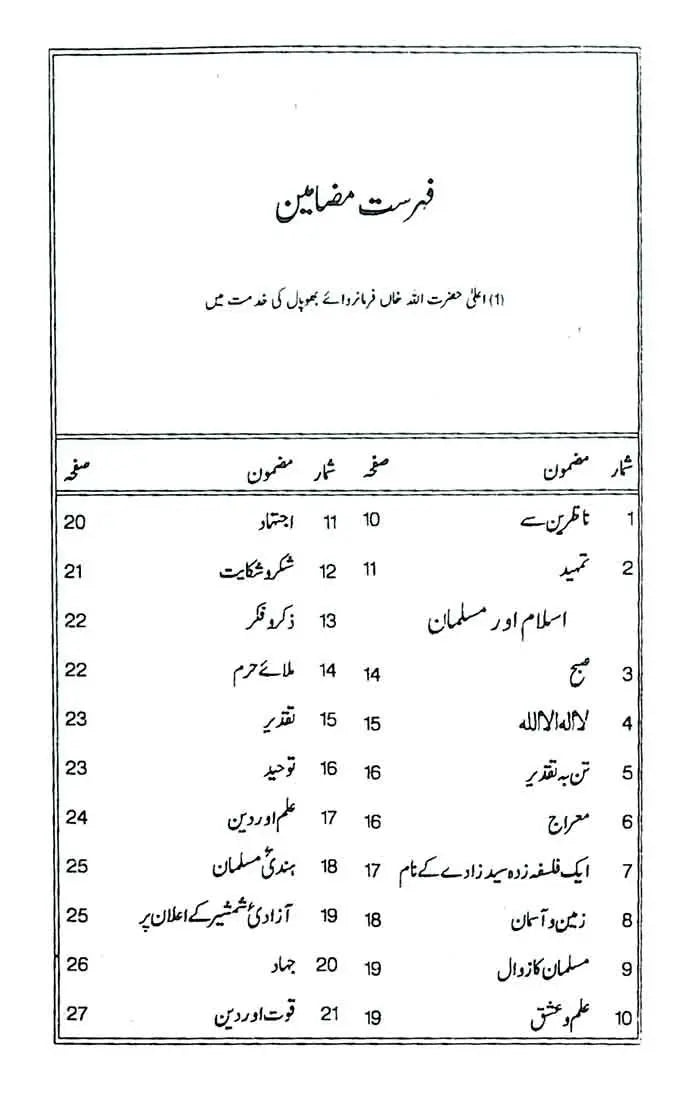 فہرست مضامین
(1) اعلیٰ حضرت اللہ خاں فرمانروائے بھوپال کی خدمت میں
شمار مضمون صفحہ شمار مضمون صفحہ
1 ناظرین سے 10 11 اجتہاد 20
2 تمہید 11 12 شکر و شکایت 21
اسلام اور مسلمان 13 ذکر و فکر 22
3 صبح 14 14 ملائے حرم 22
4 لا الہ الا اللہ 15 15 تقدیر 23
5 تن بہ تقدیر 16 16 توحید 23
6 معراج 16 17 علم اور دین 24
7 ایک فلسفہ زدہ سید زادے کے نام 17 18 ہندیٔ مسلمان 25
8 زمین و آسمان 18 19 آزادیٔ شمشیر کے اعلان پر 25
9 مسلمان کا زوال 19 20 جہاد 26
10 علم و عشق 19 21 قوت اور دین 27